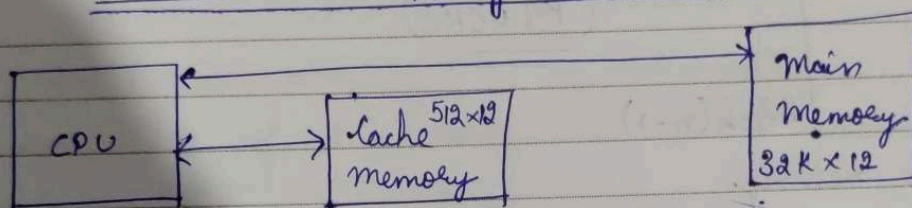 CPU
Cache 512×12
memory
Main
Memory
32K × 12